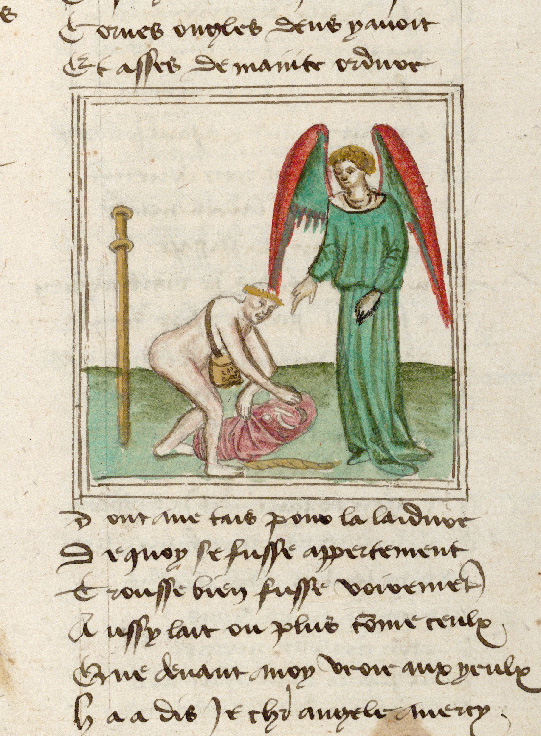 Cornes ongles deus y avoit
Et asses de mainte ordure
Dont me tais pour la laidure
De quoy se fusse appertement
Trousse bien fusse voirement
Aussy lait ou plus come ceulx
Que devant moy veoie aux yeulx
Haa dis Je chr angele mercy